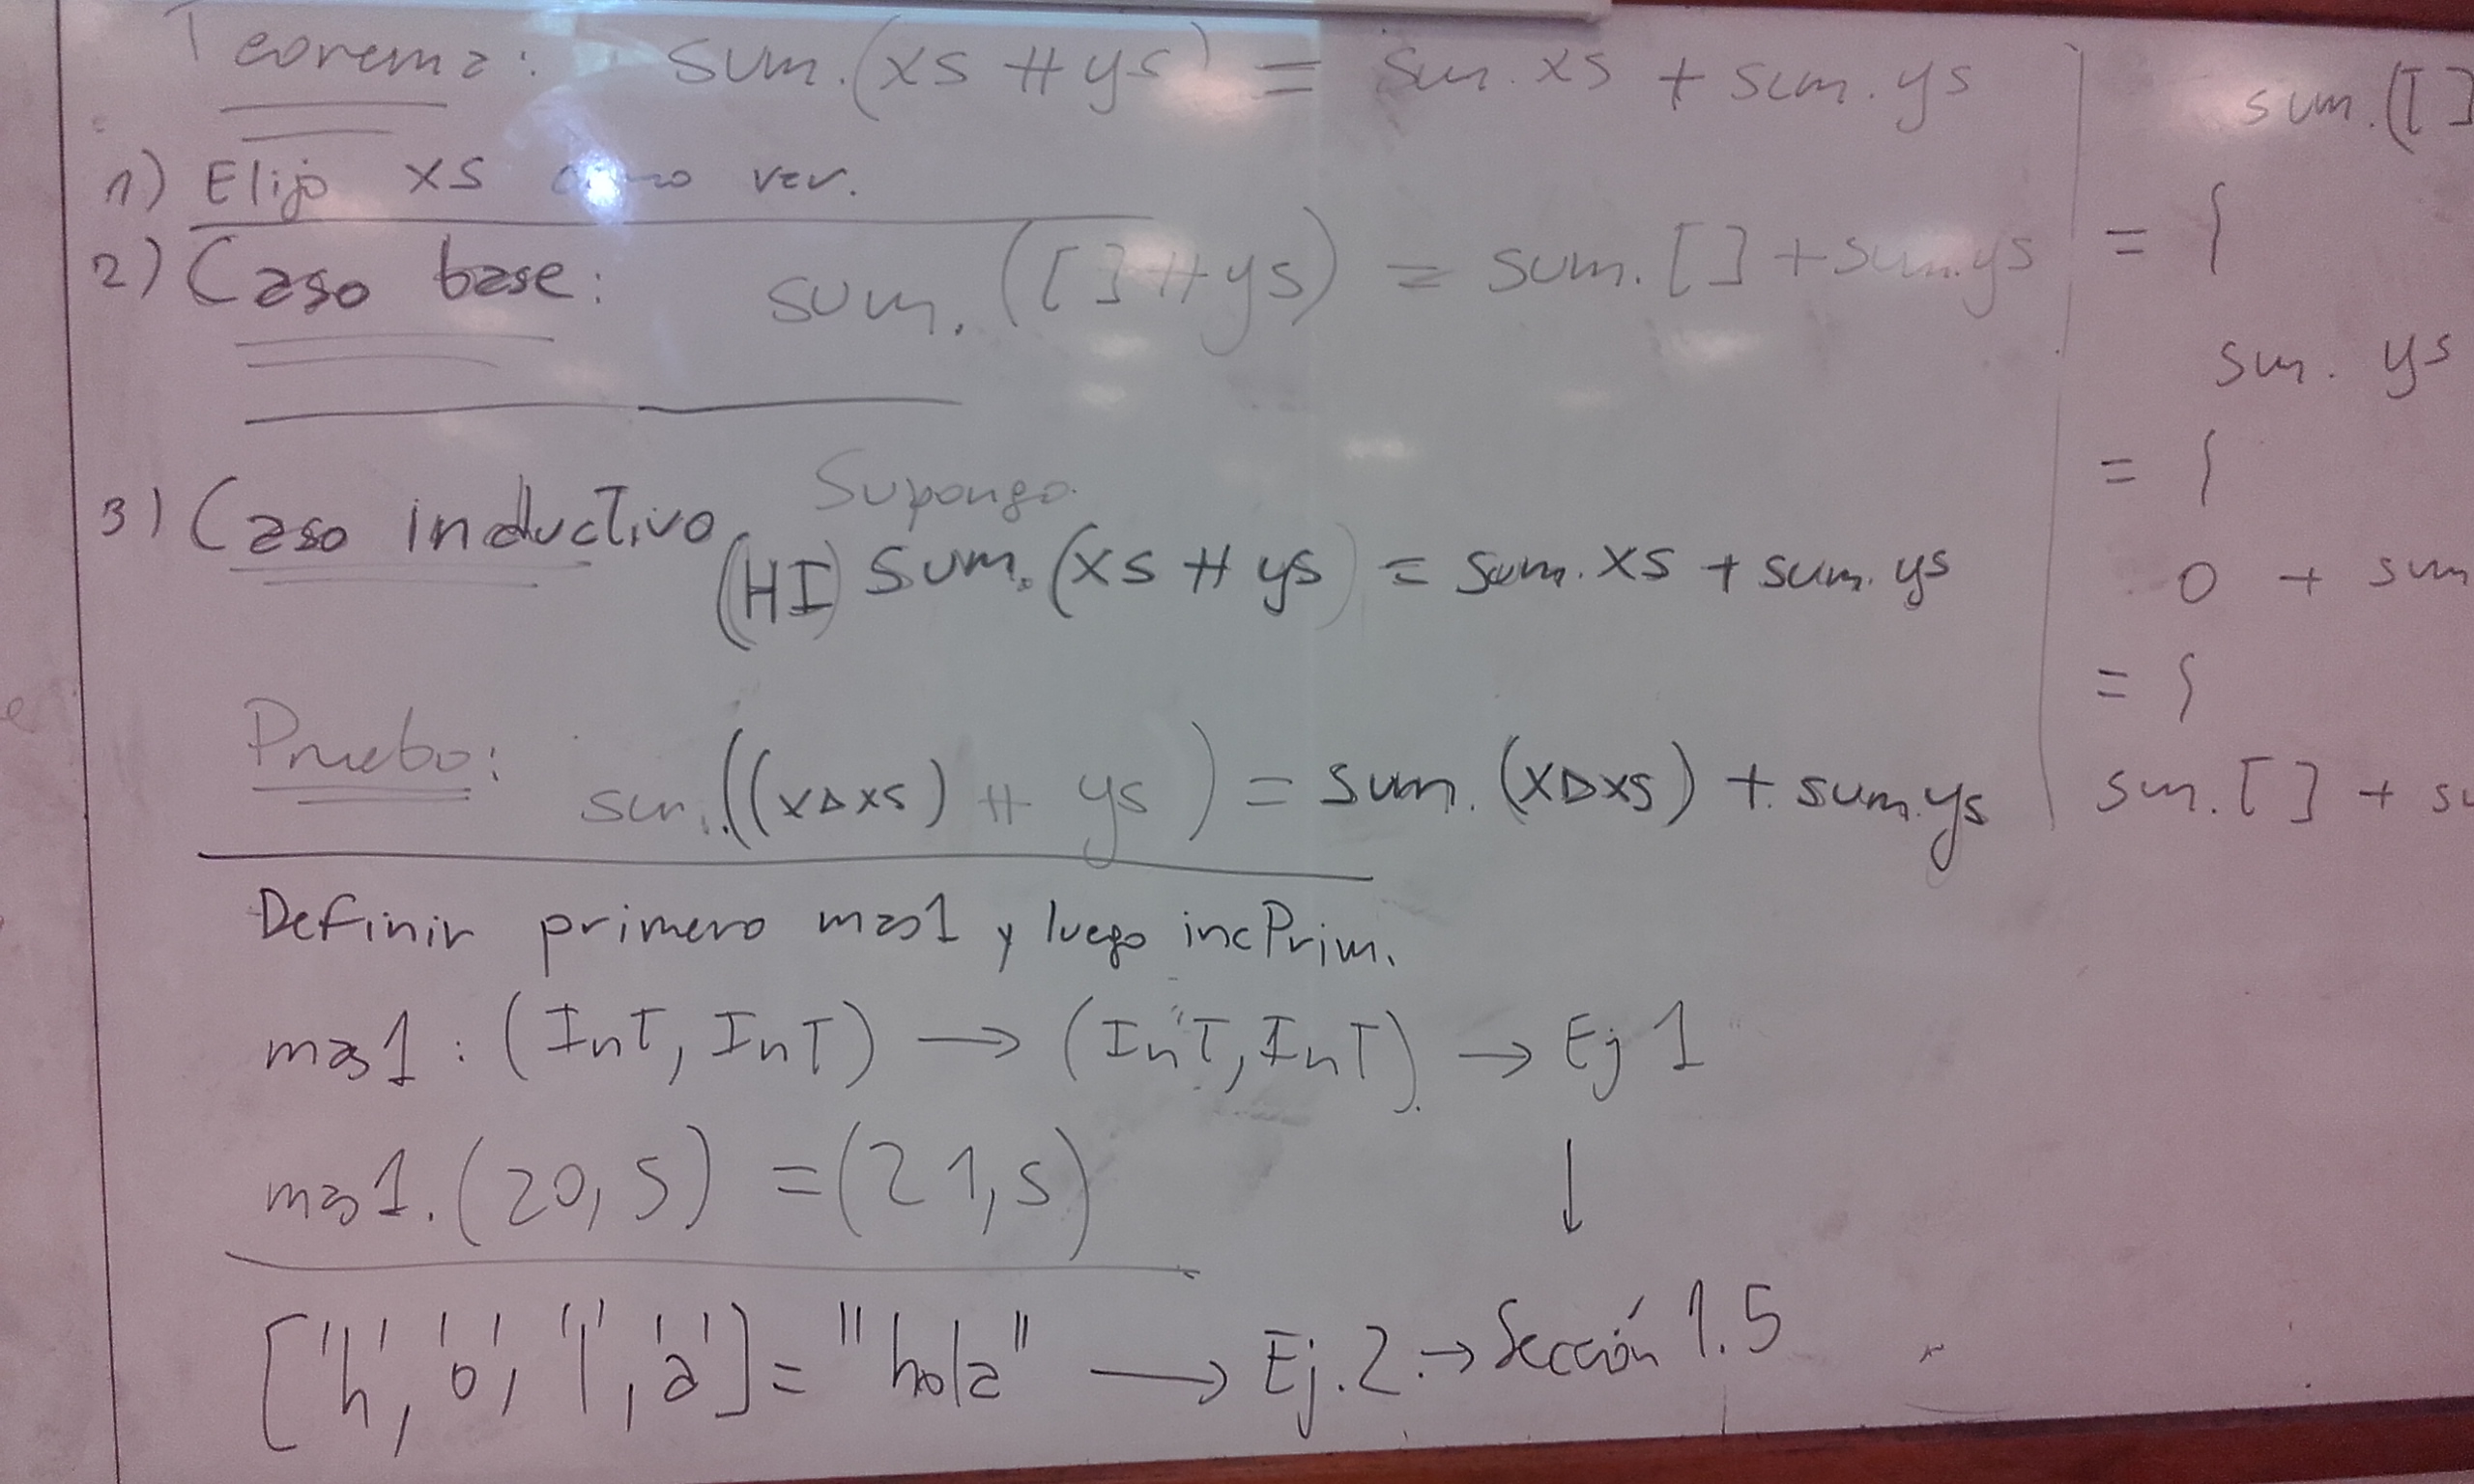 Teorema: sum.(xs ++ ys) = sum.xs + sum.ys
1) Elijo xs como var.
2) Caso base: sum.([] ++ ys) = sum.[] + sum.ys
3) Caso inductivo
Supongo
(HI) sum.(xs ++ ys) = sum.xs + sum.ys
Pruebo: sum.((x▷xs) ++ ys) = sum.(x▷xs) + sum.ys
Definir primero mas1 y luego incPrim.
mas1 : (Int, Int) → (Int, Int) → Ej 1
mas1.(20,5) = (21,5) ↓
['h','o','l','a'] = "hola" → Ej.2. → Sección 1.5
sum.([]
= {
sum. ys
= {
0 + sum
= {
sum.[] + su